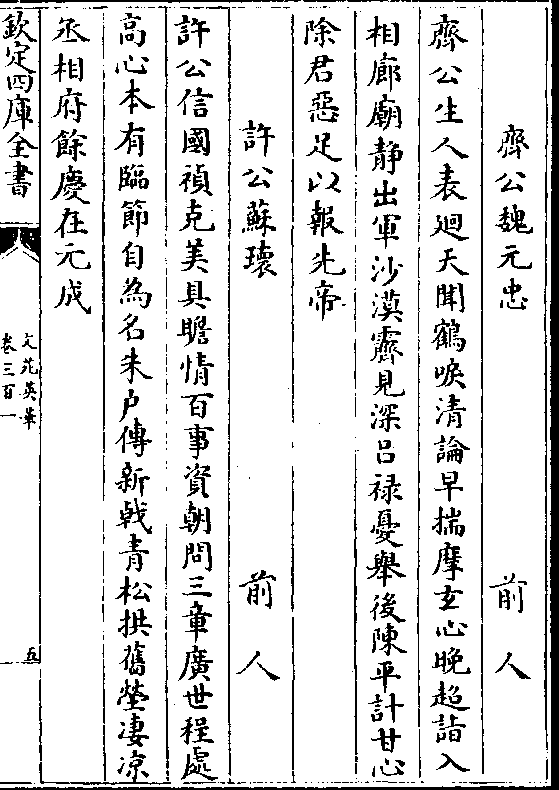 齊公魏元忠　前人
齊公生人表迥天聞鶴唳清論早揣摩玄心晚超詣入
相廊廟静出軍沙漠霽見深吕禄憂舉後陳平計甘心
除君惡足以報先帝
許公蘇瓌　前人
許公信國禎克美具瞻情百事資朝問三章廣世程處
高心本有臨節自為名朱户傳新戟青松拱舊塋淒凉
丞相府餘慶在元成
欽定四庫全書
文苑英華
卷三百一
五